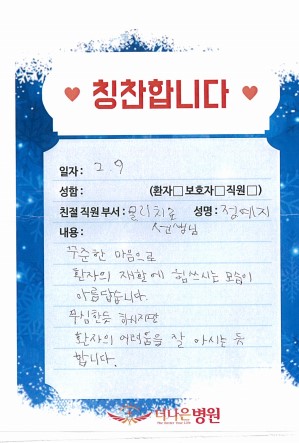 칭찬합니다
일자 : 2. 9
성함 : (환자□ 보호자□ 직원□)
친절 직원 부서 : 물리치료 성명 : 정예지
선생님
내용 :
꾸준한 마음으로
환자의 재활에 힘쓰시는 모습이
아름답습니다.
무심한듯 하시지만
환자의 어려움을 잘 아시는 듯
합니다.
더나은병원